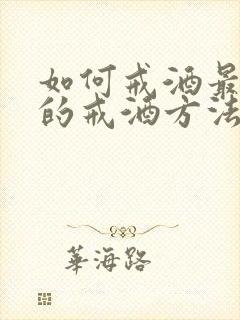 如何戒酒最
的戒酒方法
華海路